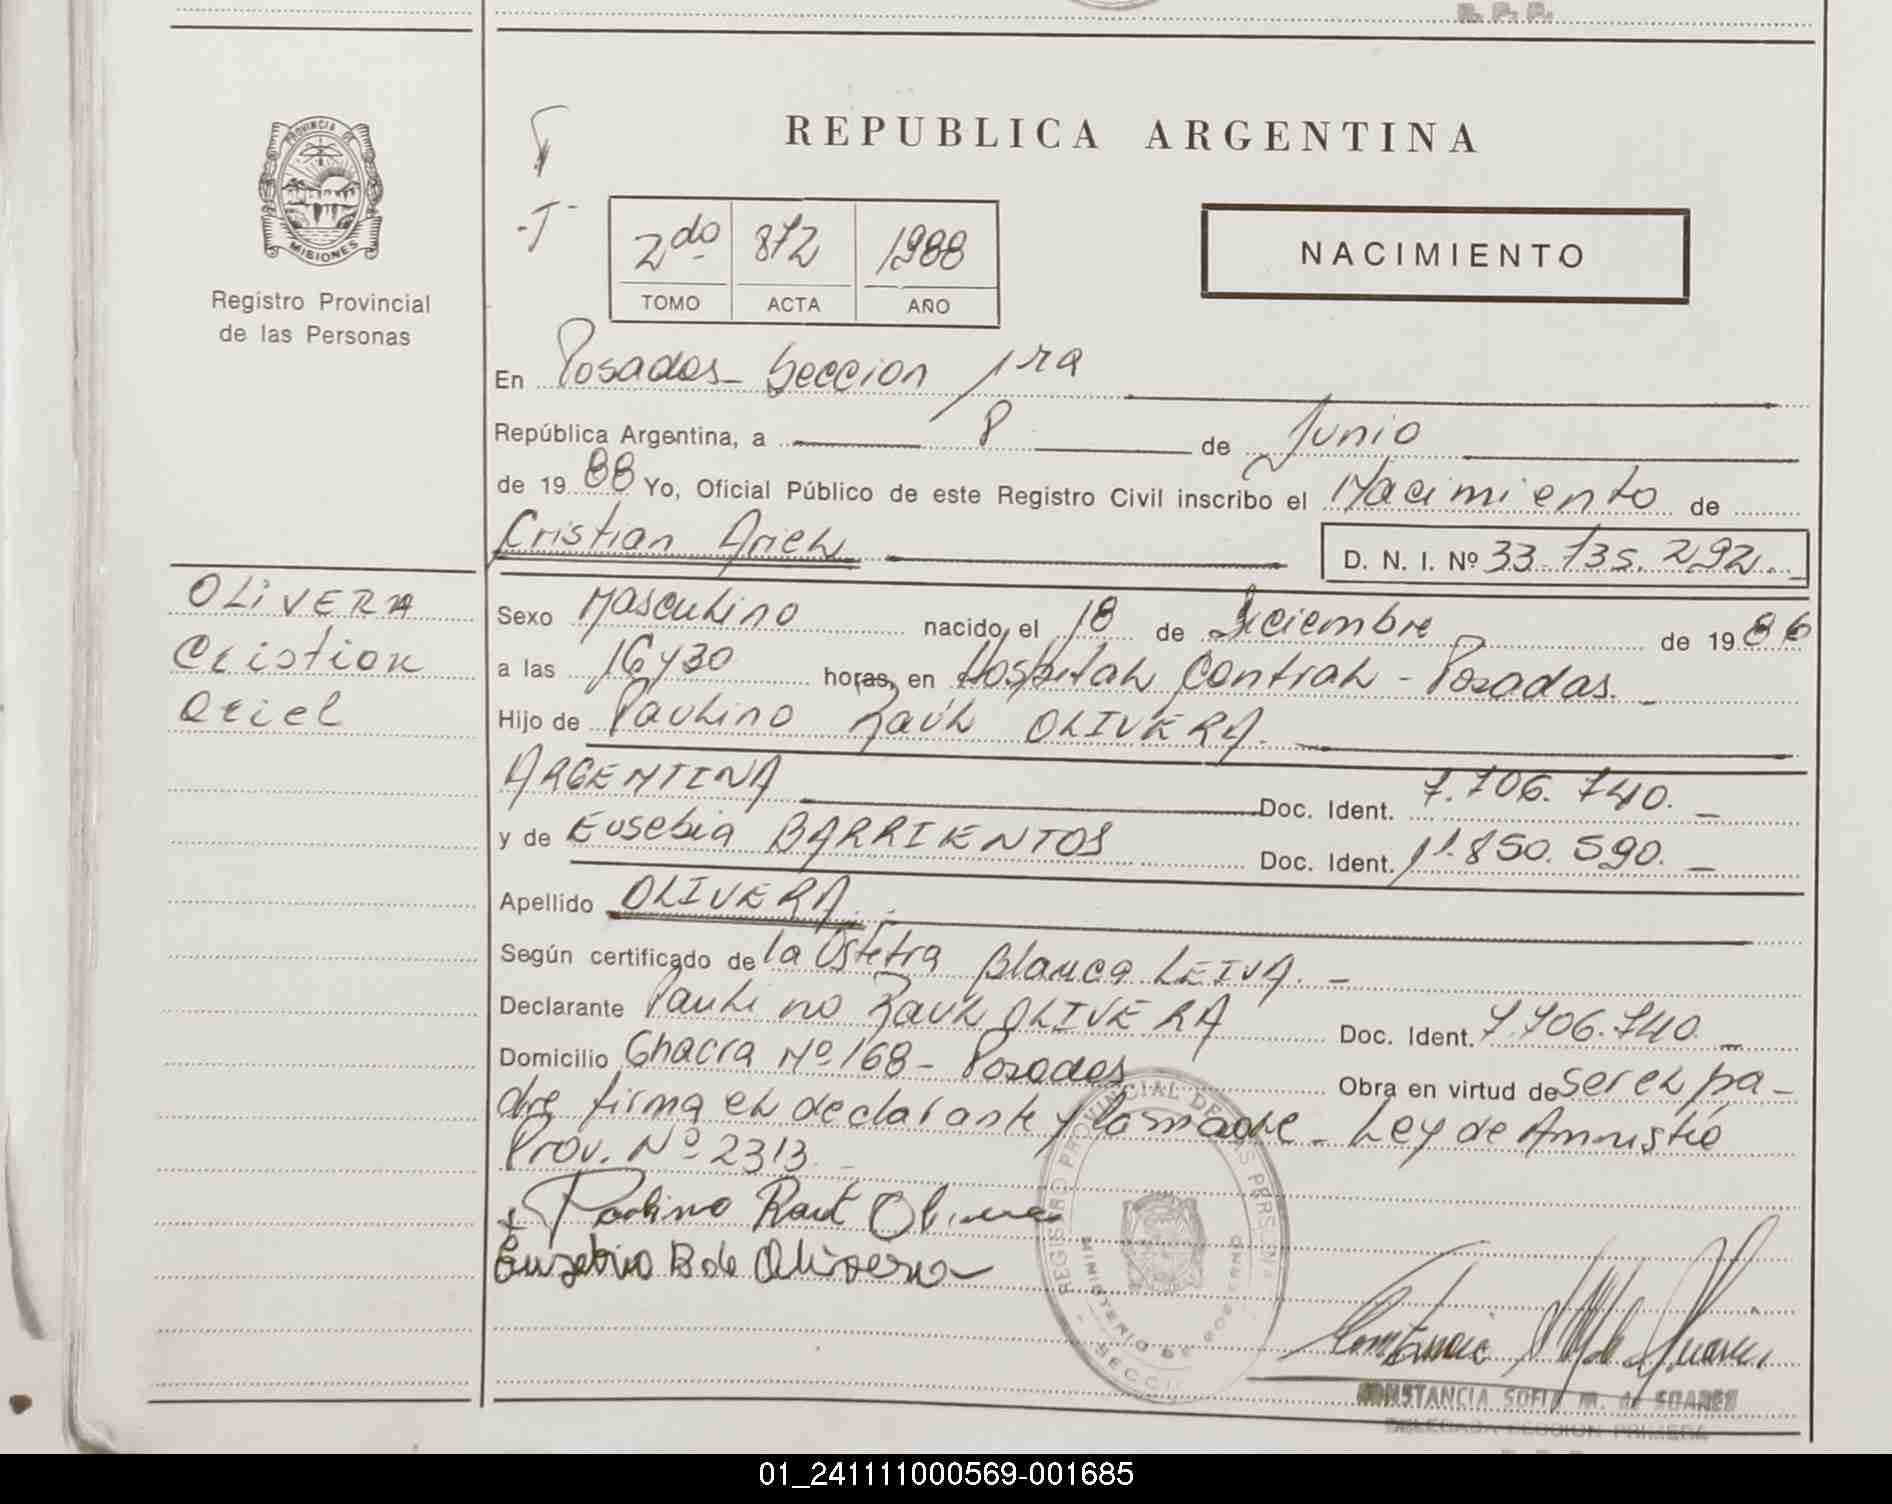 R. P. P.
PROVINCIA DE
MISIONES
Registro Provincial
de las Personas
REPUBLICA ARGENTINA
2do 872 1988
TOMO ACTA AÑO
NACIMIENTO
En Posadas - Seccion 1ra
República Argentina, a 8 de Junio
de 1988 Yo, Oficial Público de este Registro Civil inscribo el Nacimiento de
Cristian Ariel D. N. I. Nº 33.735.292.
OLIVERA
Cristian
Ariel
Sexo Masculino nacido el 18 de Diciembre de 1986
a las 16 y 30 horas, en Hospital Central - Posadas.
Hijo de Paulino Raúl OLIVERA.
ARGENTINA Doc. Ident. 7.706.740.
y de Eusebia BARRIENTOS Doc. Ident. 11.850.590.
Apellido OLIVERA.
Según certificado de la Ostetra Blanca LEIVA. -
Declarante Paulino Raúl OLIVERA Doc. Ident. 7.706.740.
Domicilio Chacra Nº 168 - Posadas Obra en virtud de ser el pa-
dre firma el declarante y la madre - Ley de Amnistía
Prov. Nº 2313. -
Paulino Raul Olivera
Eusebia B de Olivera
REGISTRO PROVINCIAL DE LAS PERSONAS
MINISTERIO DE GOBIERNO
CONSTANCIA SOFIA M. de SUAREZ
DELEGADA SECCION PRIMERA
01_241111000569-001685